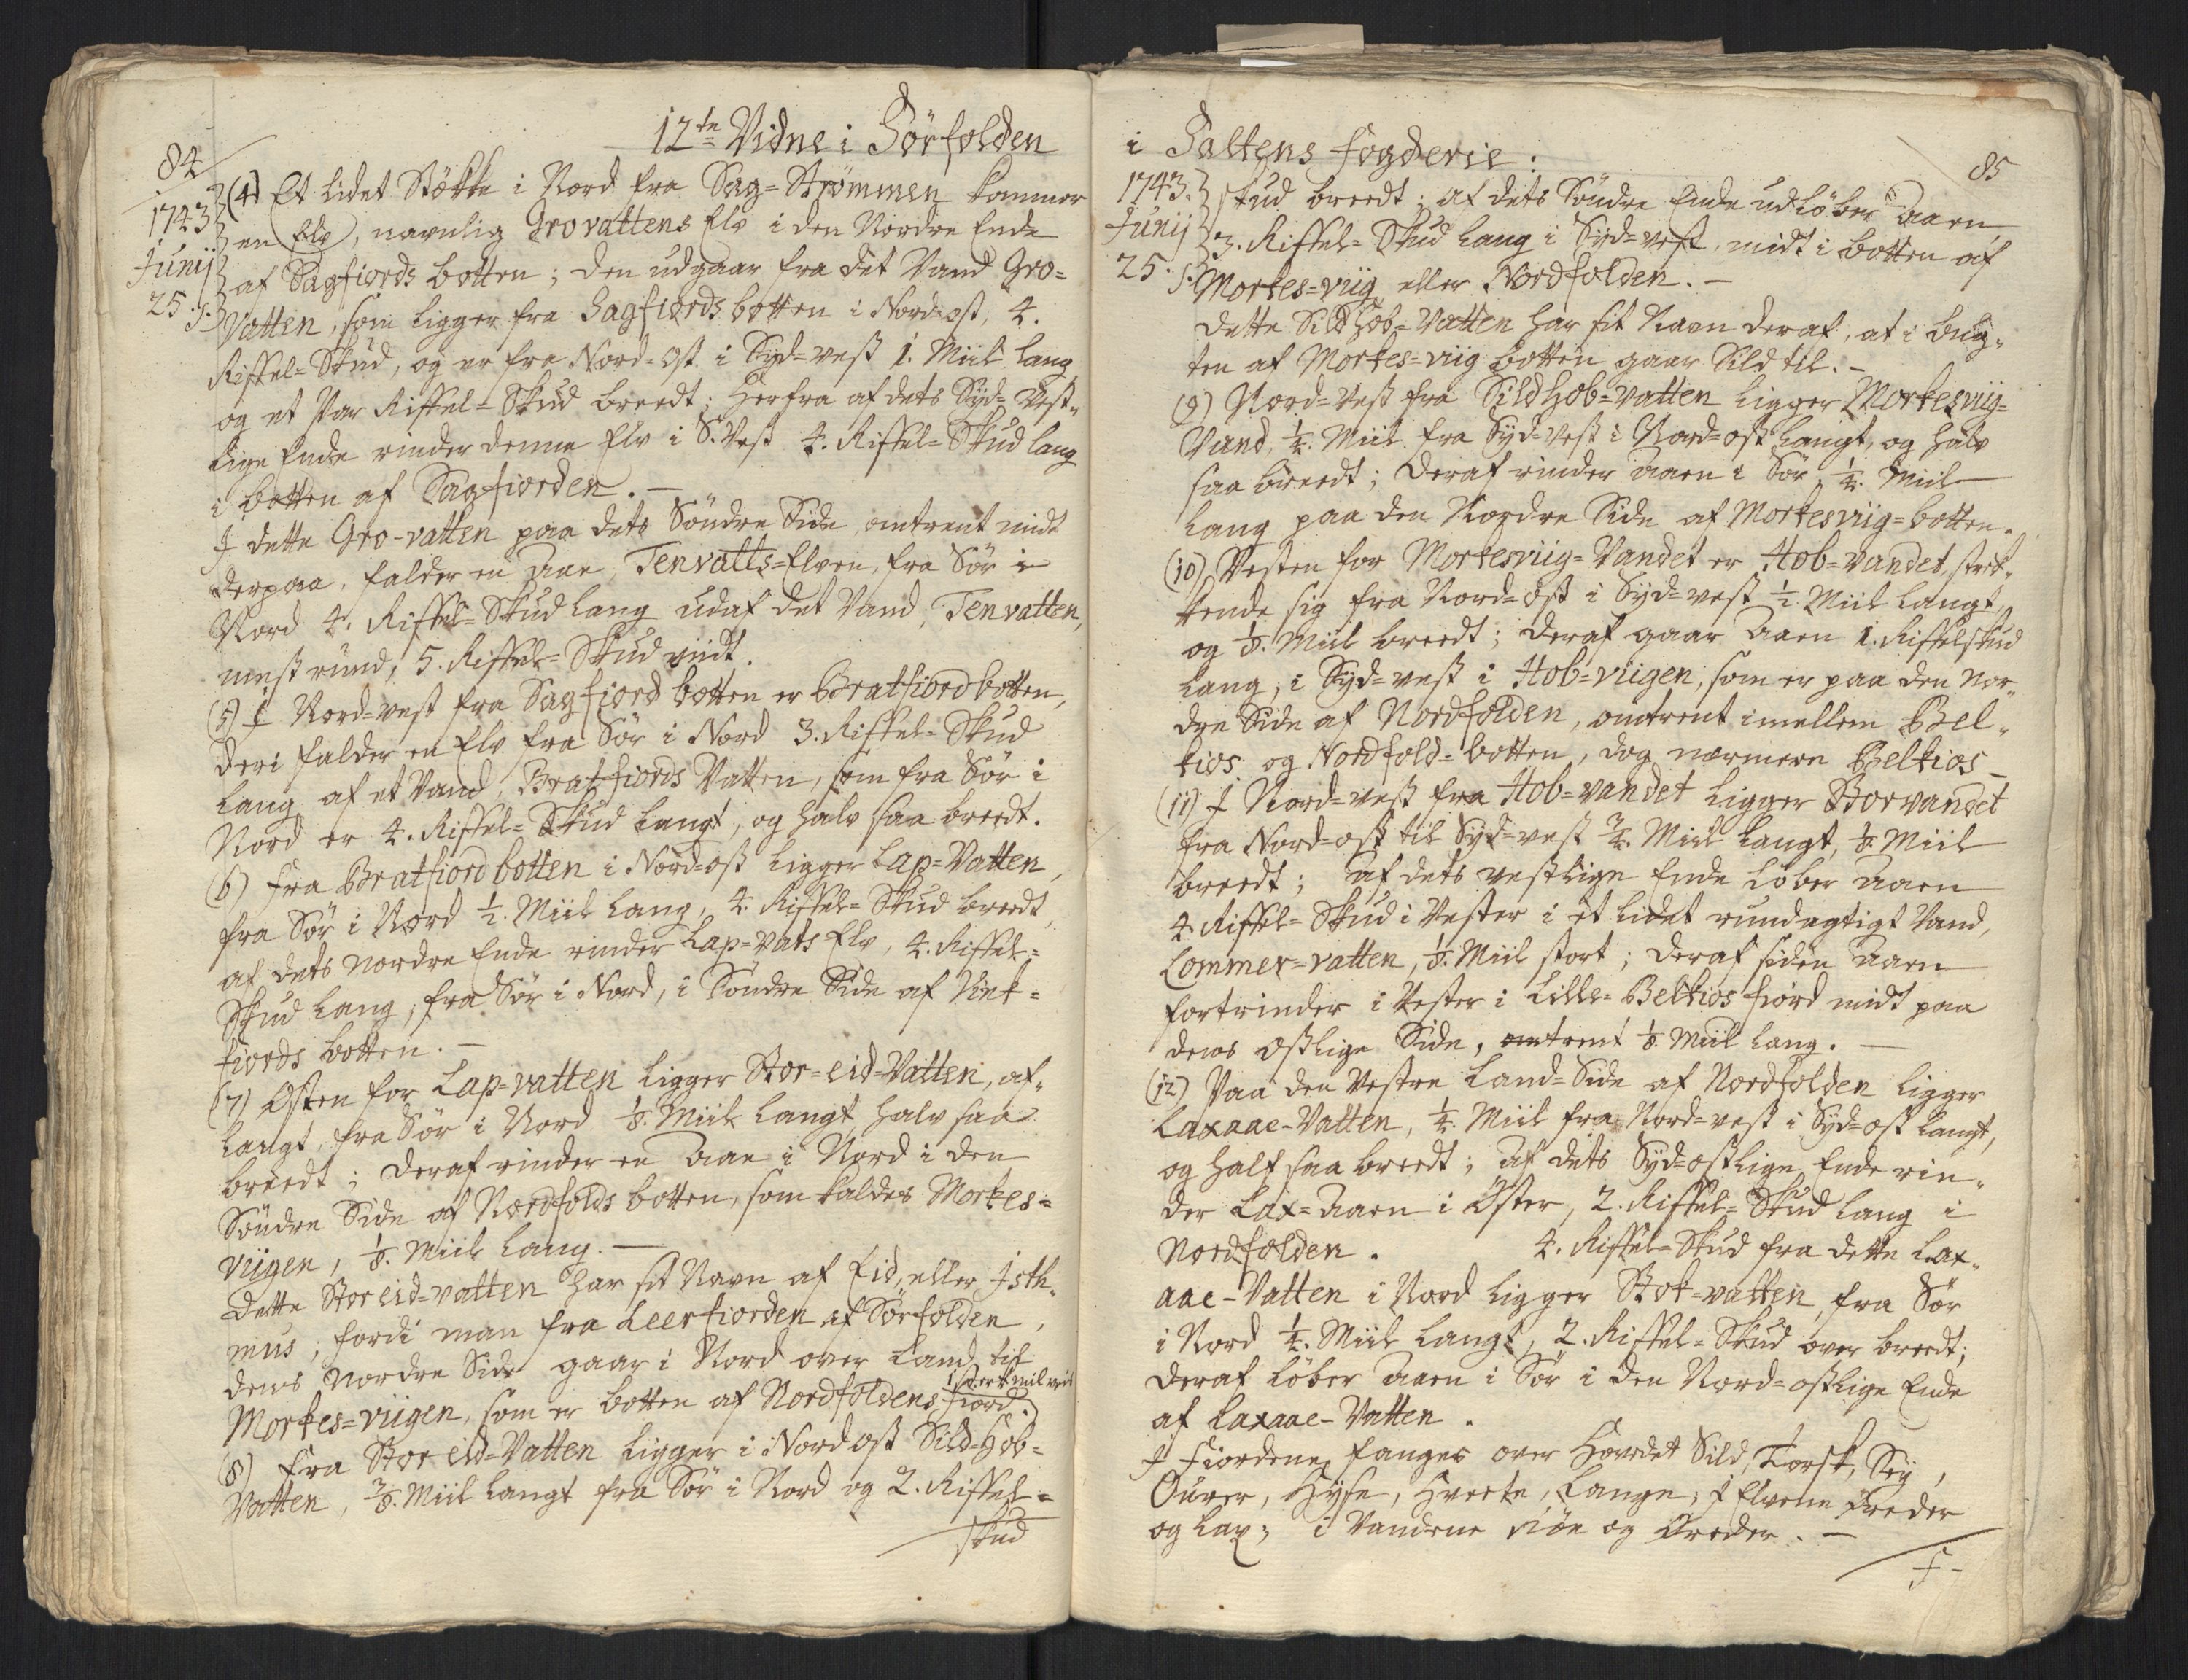 84
12te Vidne i Sörfolden
1743
Junij
25. s.
(4) Et lidet Stökke i Nord fra Sag=Strömmen kommer
en Elv, navnlig Grovattens Elv i den Nordre Ende
af Sagfiords botten; den udgaar fra det Vand Gro=
Vatten, som ligger fra Sagfiords botten i Nord=ost, 4.
Riffel=Skud, og er fra Nord=Ost i Syd=vest 1. Miil lang
og et Par Riffel=Skud breedt; Herfra af dets Syd=Vest=
lige Ende rinder denne Elv i S.Vest 4. Riffel=Skud lang
i botten af Sagfiorden.—
J dette Gro-vatten paa dets Söndre Side omtrent midt
derpaa, falder en Aae, Tenvatts=Elven, fra Sör i
Nord 4. Riffel=Skud lang udaf det Vand, Tenvatten,
mest rund, 5. Riffel=Skud viidt.
(5) J Nord=vest fra Sagfiord botten er Bratfiord botten,
deri falder en Elv fra Sör i Nord 3. Riffel=Skud
lang af et Vand, Bratfiords Vatten, som fra Sör i
Nord er 4. Riffel=Skud langt, og halv saa breedt.
(6) Fra Bratfiord botten i Nord=ost ligger Lap=Vatten,
fra Sör i Nord ½. Miil lang, 4. Riffel=Skud breedt,
af dets Nordre Ende rinder Lap=vats Elv, 4. Riffel=
Skud lang, fra Sör i Nord, i Söndre Side af Vint=
fiords botten.—
(7) Osten for Lap=vatten ligger Stor=eid=Vatten, af=
langt, fra Sör i Nord ⅛. Miil langt, halv saa
breedt; deraf rinder en Aae i Nord i den
Söndre Side af Nordfolds botten, som kaldes Morkes=
viigen, ⅛. Miil lang.—
dette Stor eid=vatten har sit Navn af Eid, eller Jsth=
mus; fordi man fra Leerfiorden af Sörfolden,
dens Nordre Side gaar i Nord over Land til
Morkes=viigen, som er botten af Nordfoldens fiord.
(8) Fra Stor eid=Vatten ligger i Nordost Sild=Hob=
Vatten, ⅜. Miil langt fra Sör i Nord og 2. Riffel=
skud
i Saltens Fogderie:
85
1743.
Junij
25. s.
skud breedt; af dets Söndre Ende udlöber Aaen
3. Riffel=Skud lang i Syd=vest, midt i botten af
Morkes=viig eller Nordfolden.—
dette Sildhob=Vatten har sit Navn deraf, at i bug=
ten af Morkes=viig botten gaar Sild til.—
(9) Nord=Vest fra Sildhob=vatten ligger Morkesviig=
Vand, ¼. Miil fra Syd=Vest i Nord=ost langt, og halv
saa breedt; deraf rinder Aaen i Sör, ¼. Miil
lang paa den Nordre Side af Morkesviig=botten.
(10) Vesten for Morkesviig=Vandet er Hob=vandet, strek=
kende sig fra Nord=ost i Syd=vest ½ Miil langt,
og ⅛. Miil breedt; deraf gaar Aaen 1. Riffelskud
lang, i Syd=vest i Hob=viigen, som er paa den Nor=
dre Side af Nordfolden, omtrent imellem Bel=
kios og Nordfold=botten, dog nærmere Belkios—
(11) J Nord=vest fra Hob=vandet ligger Storvandet
fra Nord=ost til Syd=vest ¾. Miil langt, ⅛. Miil
breedt; af dets vestlige Ende löber Aaen
4. Riffel=Skud i Vester i et lidet rundagtigt Vand,
Lommer=vatten, ⅛. Miil stort; deraf siden Aaen
fortrinder i Vester i Lille=Belkios fiord midt paa
dens Ostlige Side, omtrent ⅛. Miil lang.—
(12) Paa den Vestre Land=Side af Nordfolden ligger
Laxaae-Vatten, ¼. Miil fra Nord=vest i Syd=ost langt,
og half saa breedt; af dets Syd=ostlige Ende rin=
der Lax=Aaen i Öster, 2. Riffel=Skud lang i
Nordfolden. 4. Riffel=Skud fra dette Lax=
aae-Vatten i Nord ligger Stok=vatten, fra Sör
i Nord ¼. Miil langt, 2. Riffel=Skud over breedt;
deraf löber Aaen i Sör i den Nord=ostlige Ende
af Laxaae-Vatten.
J Fiordene fanges over Hovedet Sild, Torsk, Sey,
Ourer, Hyse, Hveete, Lange; J Elvene Öreder
og Lax; i Vandene Röe og Öreder.—